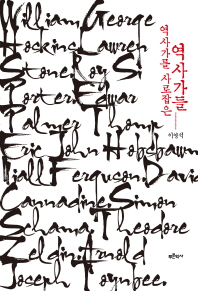 William George
Hoskins Lawren
Stone Roy S
Porter Edwar
Palmer Thomp
Eric John Hobsbawm
Niall Ferguson David
Cannadine Simon
Schama Theodore
Zeldin Arnold
Joseph Toynbee.
역사가를 사로잡은
역사가들
이영석
푸른역사